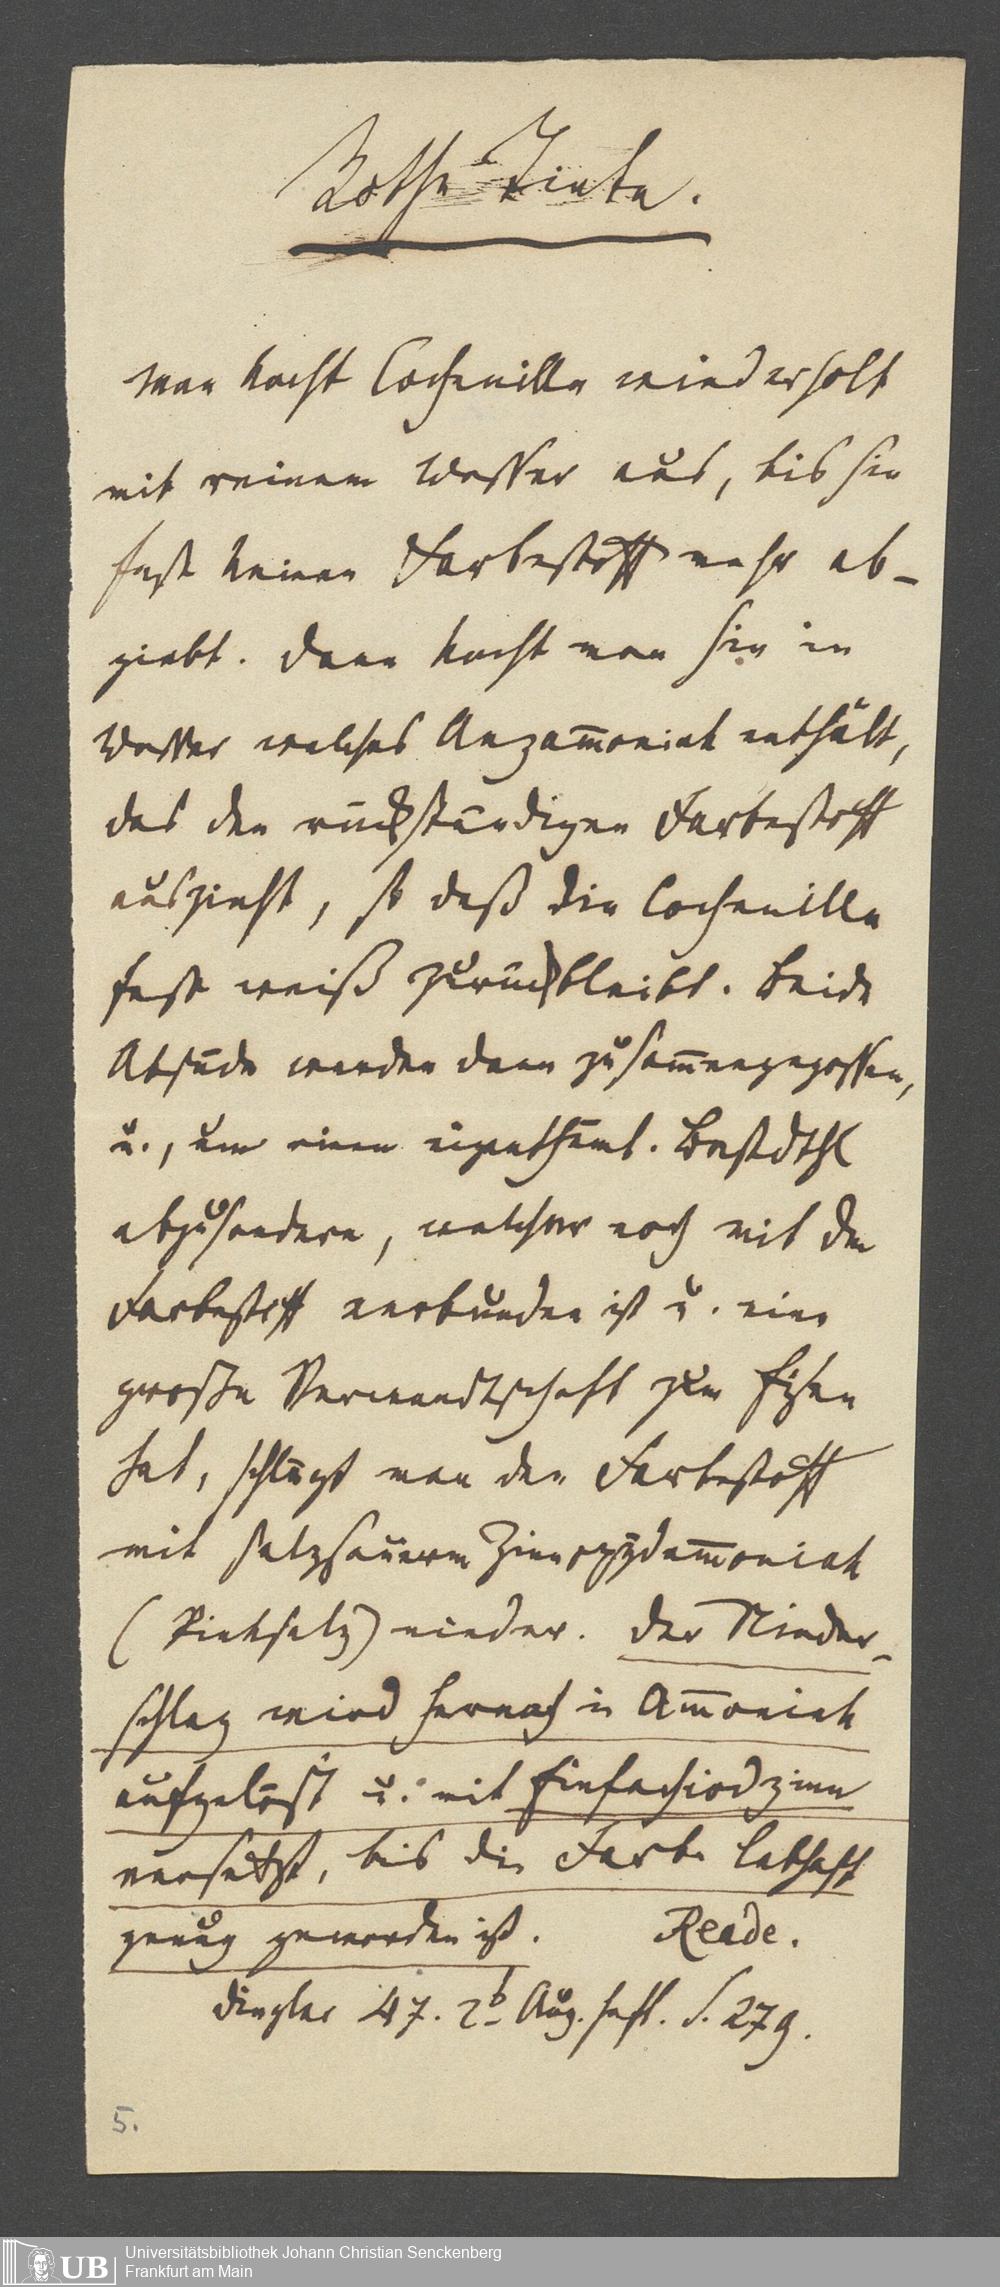 Rothe Tinte.
Man kocht Cochenille wiederholt
mit reinem Wasser aus, bis sie
fast keinen Farbestoff mehr ab-
giebt. Dann kocht man sie in
Wasser welches Aezam̅oniak enthält,
das den rückständigen Farbestoff
auszieht, so daß die Cochenille
fast weiß zurückbleibt. Beide
Absude werden dann zusam̅engegossen,
u., um einen eigenthüml. Bestdthl
abzusondern, welcher noch mit dem
Farbestoff verbunden ist u. eine
große Verwandtschaft zum Eisen
hat, schlägt man den Farbestoff
mit salzsauerm Zinnoxydam̅oniak
(Pinksalz) nieder. Der Nieder-
schlag wird hernach in Am̅oniak
aufgelöst u. mit Einfachiodzinn
versetzt, bis die Farbe lebhaft
genug geworden ist. Reade.
Dingler 47. 2b Aug. Heft. S. 279.
5.
UB Universitätsbibliothek Johann Christian Senckenberg
Frankfurt am Main